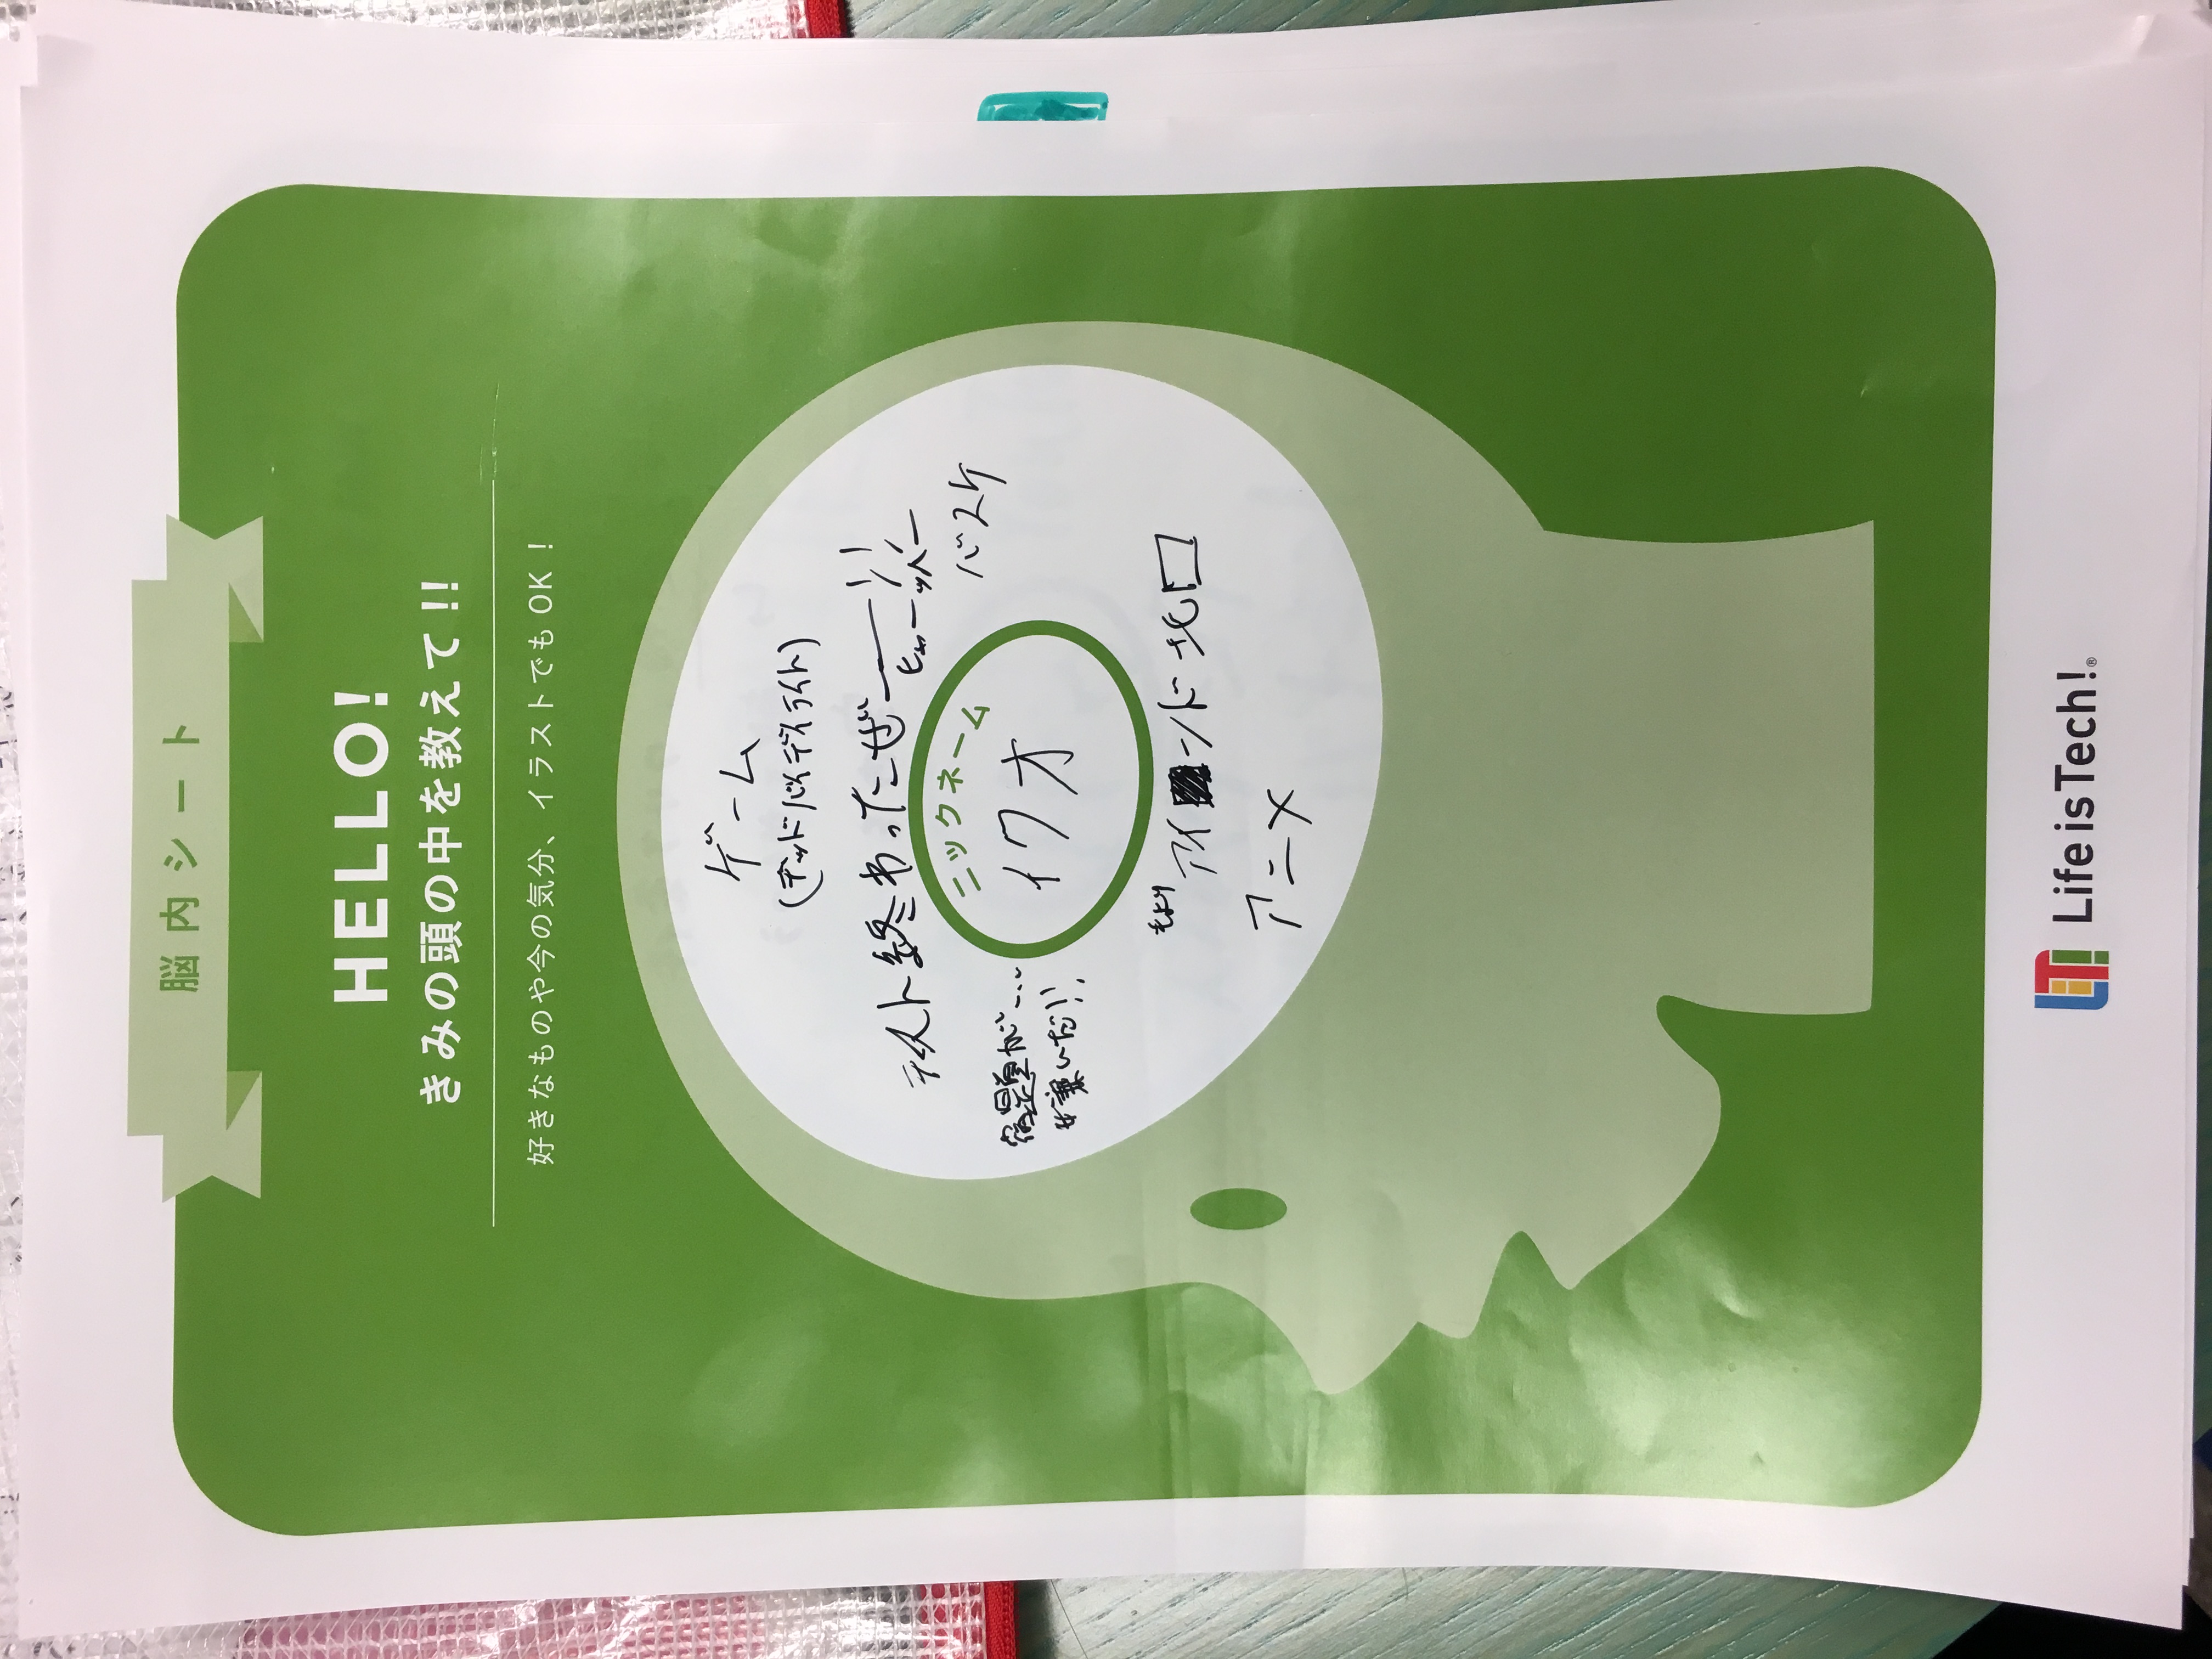 脳内シート
HELLO!
きみの頭の中を教えて!!
好きなものや今の気分、イラストでもOK!
ゲーム
(デッドバイデイライト)
テスト終わったぜー!!
ヒャーッハー
バスケ
ニックネーム
イクオ
宿題が…
嫌いだ!!
もより
アイ ンド北口
アニメ
Life is Tech!®